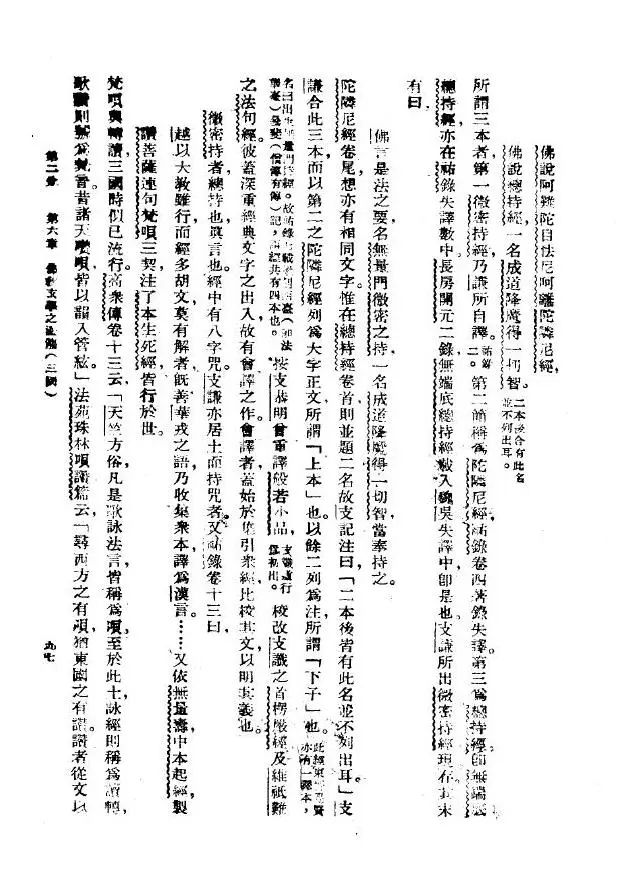 佛說阿難陀目佉尼呵離陀隣尼經，
佛說總持經一名成道降魔得一切智。二本後合有此名並不列出耳。
所謂三本者第一微密持經乃謙所自譯。祐錄二。第二簡稱爲陀隣尼經祐錄卷四著錄失譯。第三爲總持經即無端底
總持經亦在祐錄失譯數中長房開元二錄無端底總持經載入魏吳失譯中即是也。支謙所出微密持經現存其末
有曰
佛言是法之要名無量門微密之持一名成道降魔得一切智當奉持之。
陀隣尼經卷尾想亦有相同文字惟在總持經卷首則並題二名故支記注曰「二本後皆有此名並不列出耳」支
謙合此三本而以第二之陀隣尼經列爲大字正文所謂「上本」也以餘二列爲注所謂「下子」也。此經東晉 賢亦有一譯本，
名曰出生無量門持經。故祐錄 載 有 臺（即法華臺）曇斐（僧傳有傳）記，謂經共有四本也。按支恭明曾重譯般若小品，支讖道行爲初出。校改支讖之首楞嚴經及維祇難
之法句經彼蓋深重經典文字之出入故有會譯之作會譯者蓋始於集引衆經比校其文以明其義也。
微密持者總持也眞言也經中有八字咒支謙亦居士而持咒者又祐錄卷十三曰
越以大教雖行而經多胡文莫有解者既善華戎之語乃收集衆本譯爲漢言……又依無量壽中本起經製
讚菩薩連句梵唄三契注了本生死經皆行於世。
梵唄與轉讀三國時似已流行。高僧傳卷十三云「天竺方俗凡是歌詠法言皆稱爲唄至於此土詠經則稱爲讀轉，
歌讚則號爲梵音昔諸天讚唄皆以韻入管絃」法苑珠林唄讚篇云「尋西方之有唄猶東國之有讚讚者從文以
第二分　第六章　佛教玄學之濫觴（三國）
九七